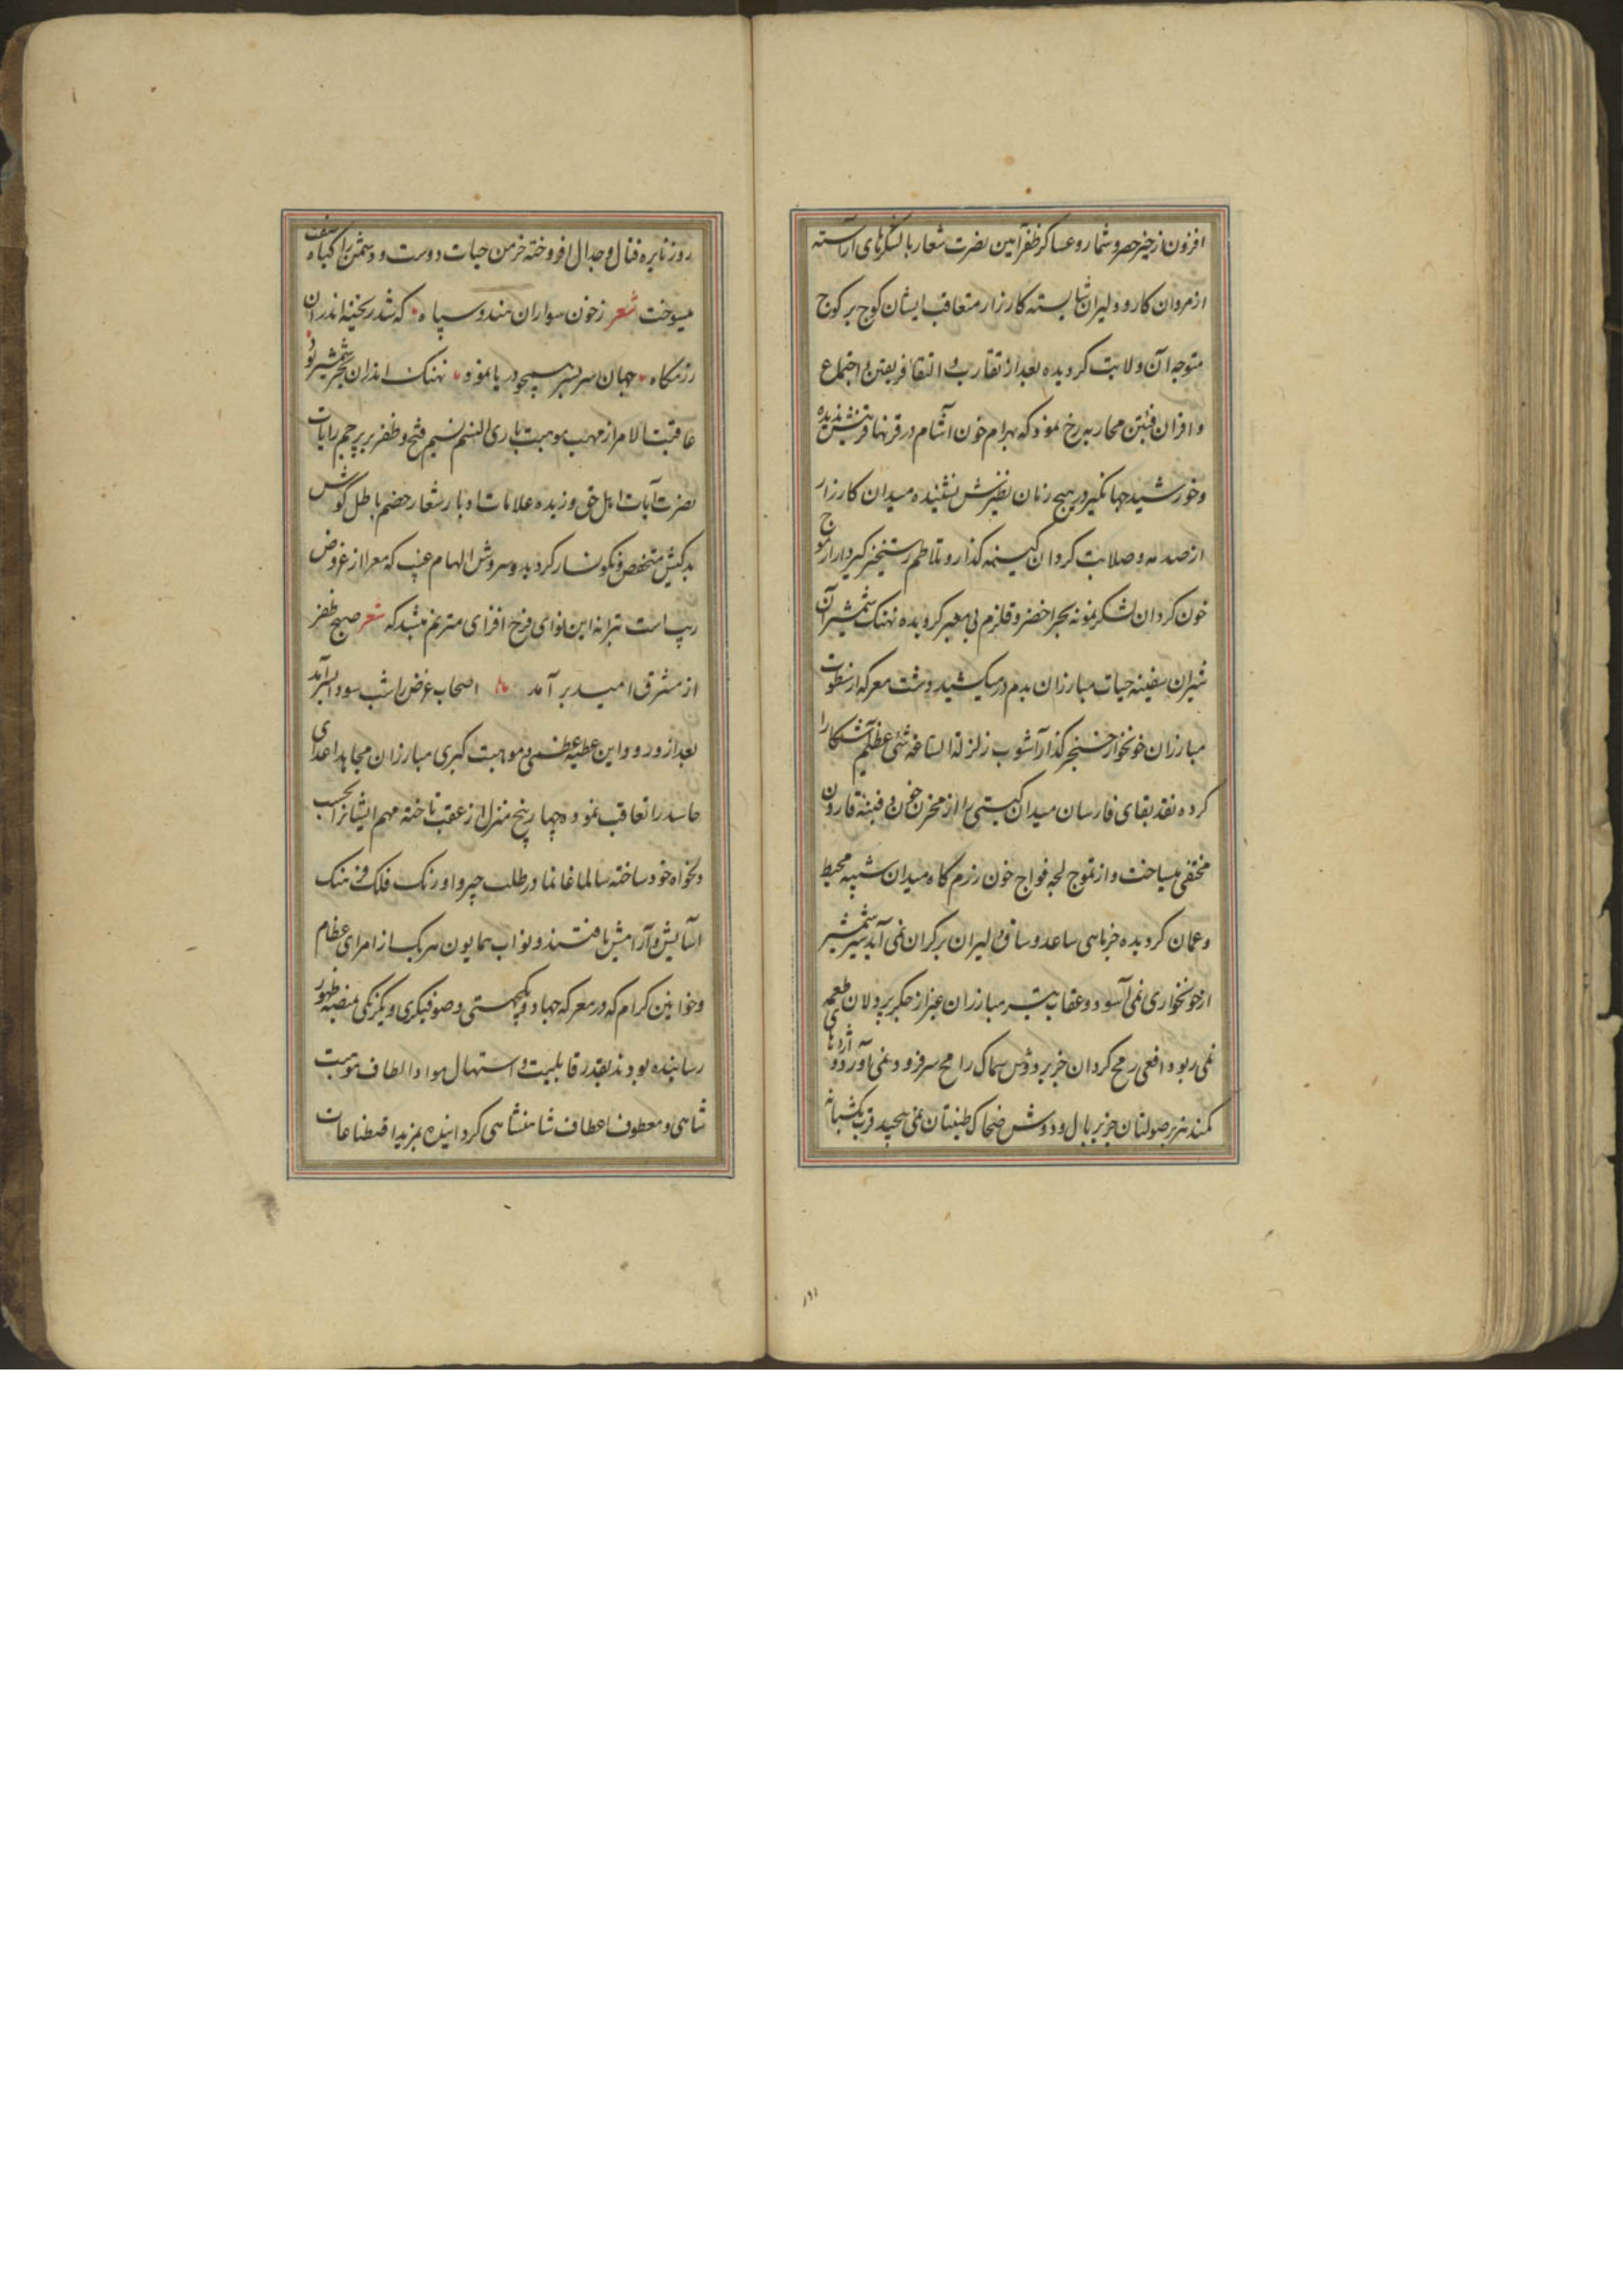 افزون از حیز حصر و شمار و عساکر ظفرآیین نصرت شعار با لشکرهای آراسته
از مردان کار و دلیران شایسته کارزار متعاقب ایشان کوچ بر کوچ
متوجه آن ولایت کردیده بعد از تقارب و التقا فریقین و اجتماع
و اقران فئتین محاربه رخ نمود که بهرام خون آشام در قرنها قرینش ندیده
و خورشید جهانکیر در هیچ زمان نظیرش نشنیده میدان کارزار
از صدمه و صلابت کردان کینه کذار و تلاطم رستخیز کیر و دار از موج
خون کردان لشکر نمونه بحر اخضر و قلزم بی معبر کردیده نهنک شمشیر آن
شیران سفینه حیات مبارزان بدم در میکشید و دشت معرکه از سطوت
مبارزان خونخوار خنجر کذار آشوب زلزلة الساعة شئ عظیم آشکارا
کرده نقد بقای فارسان میدان کیتی را از مخزن خون دفینه قارون
مختفی میساخت و از تموج لجه فواج خون رزم کاه میدان شبیه محیط
و عمان کردیده جز ماهی ساعد و ساق دلیران بر کران نمی آمد شیر شمشیر
از خونخواری نمی آسود و عقاب تیر مبارزان غیر از جکر پردلان طعمه
نمی ربود و افعی رمح کردان جز بر دوش سماک رامح سر فرود نمی آورد و اژدهای
کمند هزبر صولتان جز بر یال و دوش ضحاک طینتان نمی پیچید قرب یکشبانه
روز نایره قتال و جدال افروخته خرمن حیات دوست و دشمن را کیاه صفت
میسوخت شعر ز خون سواران هندو سپاه که شد ریخته اندر آن
رزمکاه جهان سر بسر همچو دریا نمود نهنک اندران بحر شمشیر بود
عاقبت الامر از مهب موهبت باری النسم نسیم فتح و ظفر بر پرچم رایات
نصرت آیات اهل حق وزیده علامات ادبار شعار خصم باطل کوش
بدکیش منخفض و نکونسار کردید و سروش الهام غیب که معرا از غروض
ریب است بترانه این نوای فرخ افزای مترنم شد که شعر صبح ظفر
از مشرق امید بر آمد اصحاب غرض را شب سودا بسر آمد
بعد از ورود این عطیه عظمی و موهبت کبری مبارزان مجاهد اعدای
حاسد را تعاقب نموده چهار پنج منزل از عقب تاخته مهم ایشانرا بحسب
دلخواه خود ساخته سالما غانما در طلب چتر و اورنک فلک فرهنک
آسایش و آرامش یافتند و نواب همایون هر یک از امرای عظام
و خوانین کرام که در معرکه جهاد و یکجهتی و صوفیکری و یکرنکی بمنصه ظهور
رسانیده بودند بقدر قابلیت و استهال مواد الطاف موهبت
شاهی و معطوف اعطاف شاهنشاهی کردانیده بمزید اقطاعات